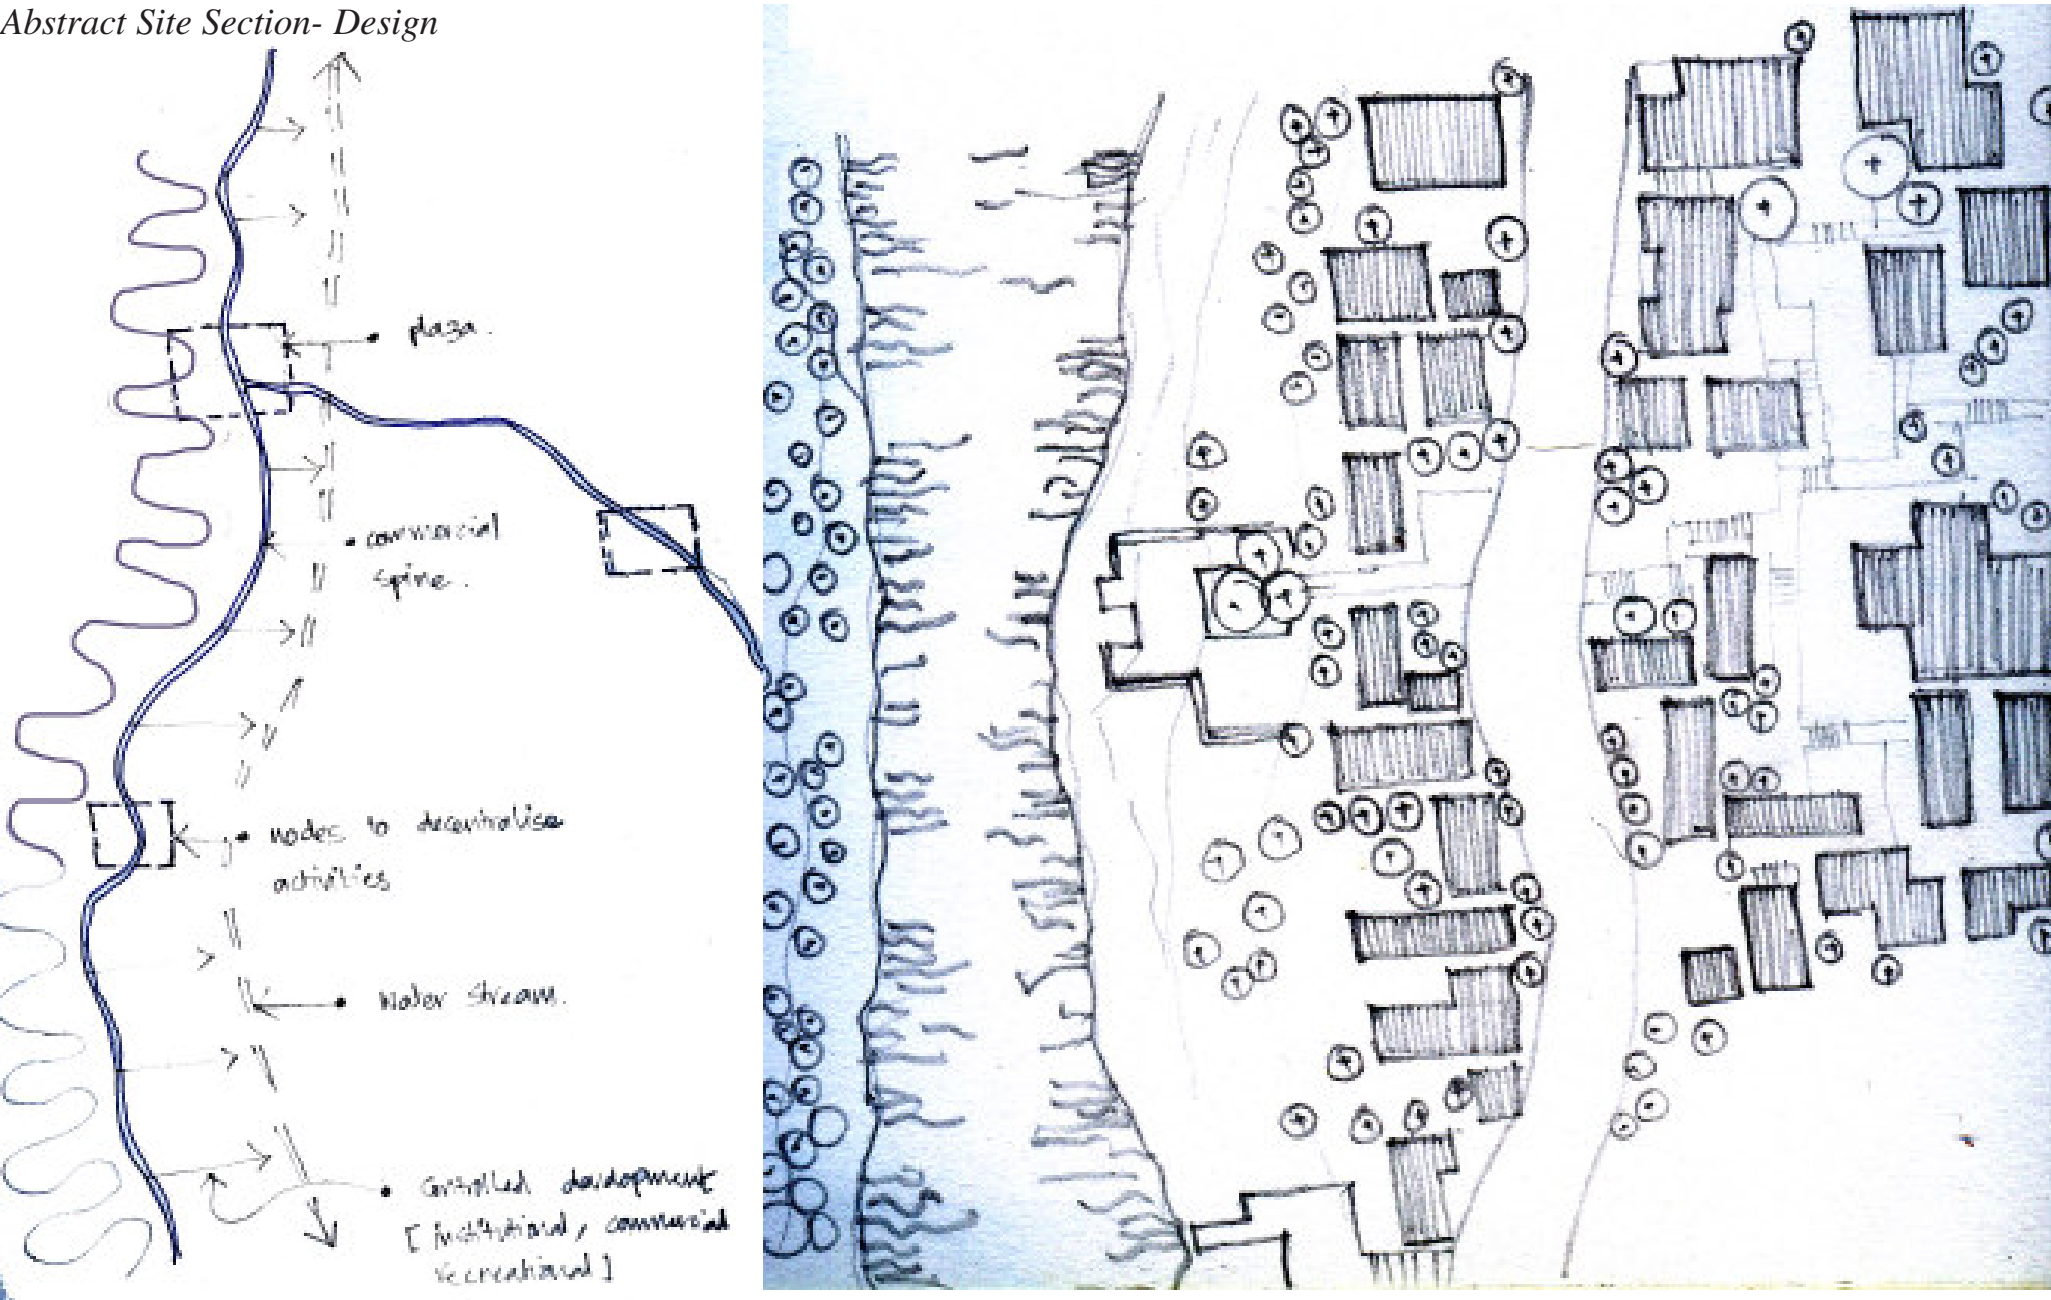 Abstract Site Section- Design
plaza.
commercial
spine.
nodes to decentralise
activities
Water stream.
Controlled development
[ institutional, commercial
recreational ]